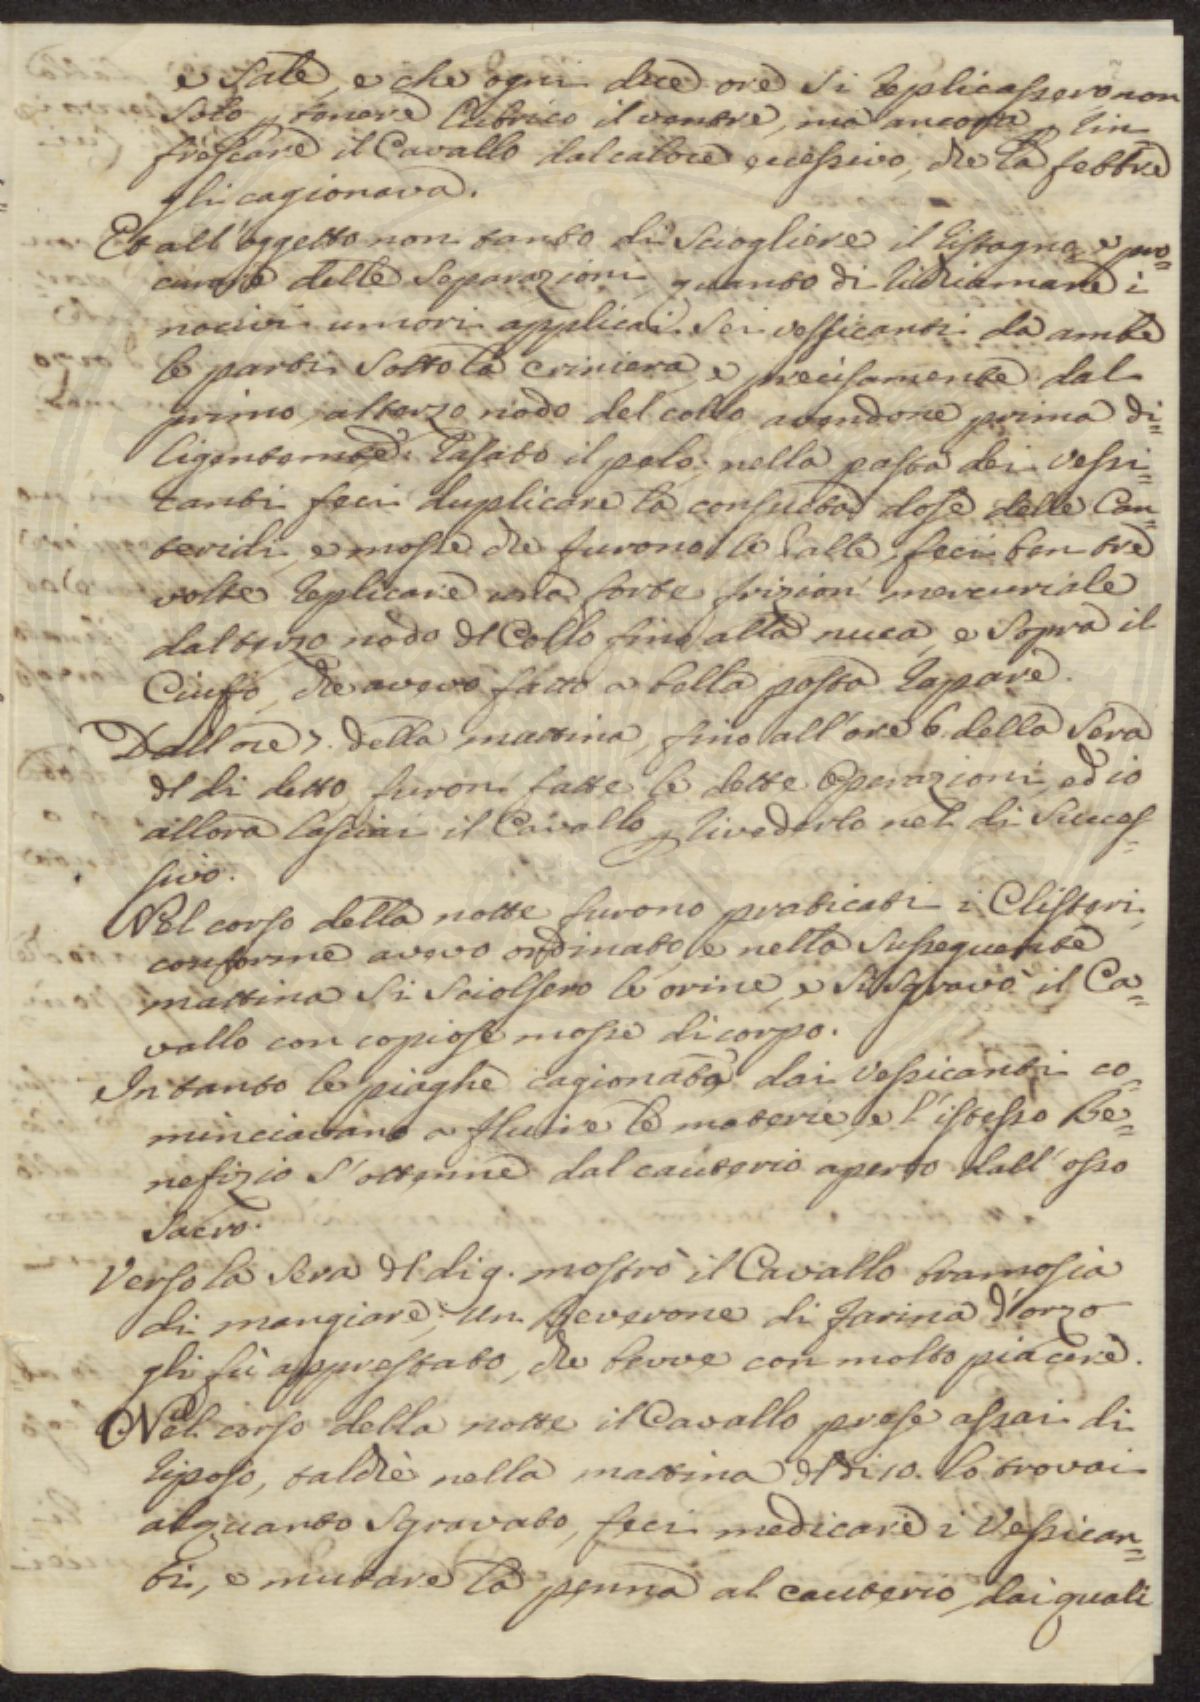 e Sale, e che ogni due ore si replicassero, non
solo p tenere lubrico il ventre, ma ancora p rin=
frescare il Cavallo dal calore eccessivo, che la febbre
gli cagionava.
Et all'oggetto non tanto di sciogliere il ristagno, e pro=
curare delle separazioni, quanto di richiamare i
nocivi umori applicai sei vessicanti da ambe
le parti sotto la criniera, e precisamente dal
primo, al terzo nodo del collo avendone prima di=
ligentemte rasato il pelo; nella pasta dei vessi=
canti feci duplicare la consueta dose delle Can=
teridi, e mosse che furono le Balle, feci ben tre
volte replicare una forte frizion mercuriale
dal terzo nodo dl Collo fino alla nuca, e sopra il
Ciuffo, che avevo fatto a bella posta rapare.
Dall'ore 7. della mattina, fino all'ore 6. della sera
dl di detto, furon fatte le dette operazioni, ed io
allora lasciai il Cavallo p rivederlo nel di succes=
sivo.
Nel corso della notte furono praticati i Clisteri,
conforme avevo ordinato, e nella susseguente
mattina si sciolsero le orine, e si sgravò il Ca=
vallo con copiose mosse di corpo.
In tanto le piaghe cagionate dai Vessicanti co=
minciavano a fluire le materie, e l'istesso Be=
nefizio s'ottenne dal cauterio aperto dall'osso
sacro.
Verso la sera dl di 9. mostrò il Cavallo bramosia
di mangiare; un Beverone di farina d'orzo
gli fù apprestato, che bevve con molto piacere.
Nel corso della notte il Cavallo prese assai di
riposo, talchè nella mattina dl di 10. lo trovai
alquanto sgravato, feci medicare i Vessican=
ti, e mutare la penna al cauterio, dai quali